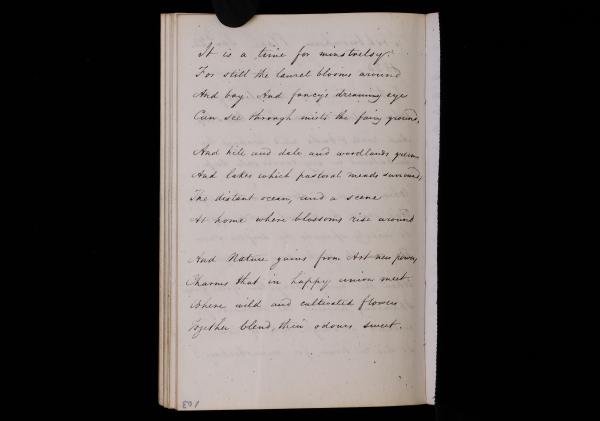 It is a time for minstrelsy.
For still the laurel blooms around
And bay. And fancy's dreaming eye
Can see through mists the fairy ground,
And hill and dale and woodlands green
And lakes which pastoral meads surround,
The distant ocean, and a scene
At home where blossoms rise around
And Nature gains from Art new power,
Charms that in happy union meet.
Where wild and cultivated flowers
Together blend, their odours sweet.
103